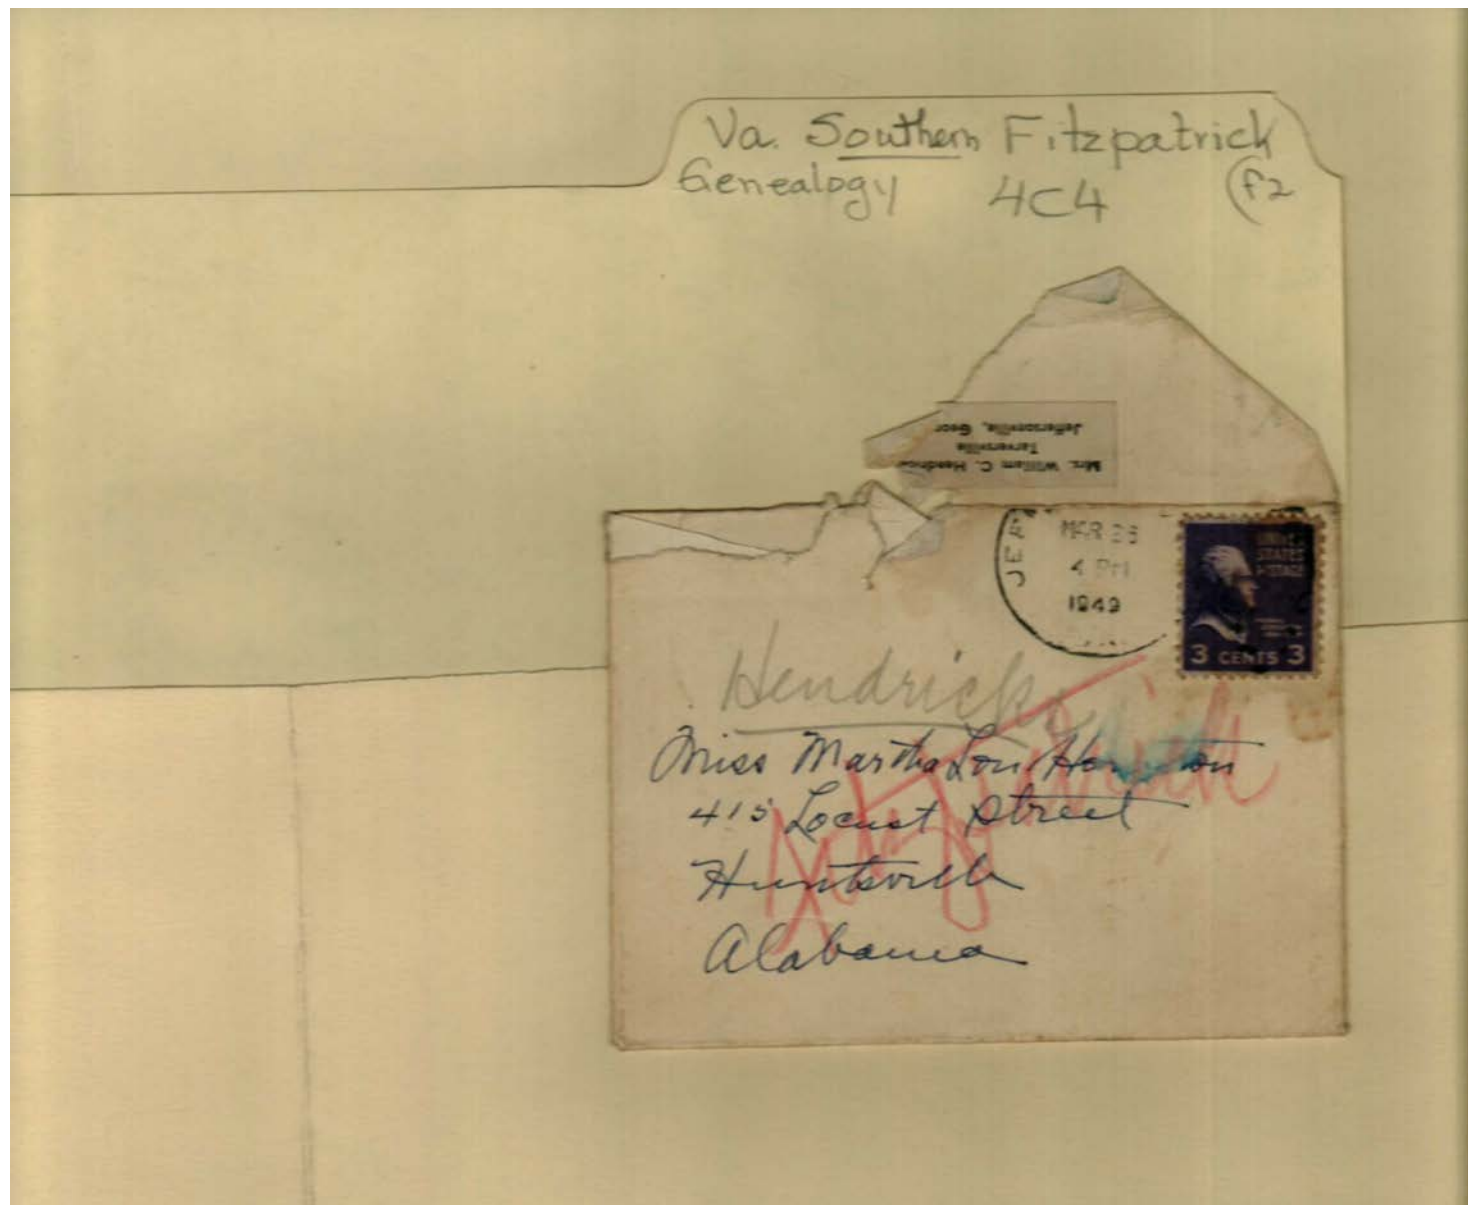 Va. Southern Fitzpatrick
Genealogy 4C4 (F2
Mrs. William C. Hendricks
Tarversville
Jeffersonville, Geor
MAR 26
4 PM
1949
UNITED
STATES
POSTAGE
3 CENTS 3
Hendricks
Miss Martha Lou
415 Locust Street
Huntsville
Alabama